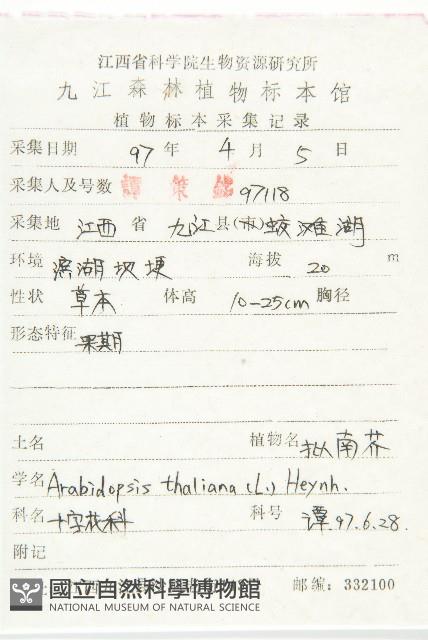 江西省科学院生物资源研究所
九江森林植物标本馆
植物标本采集记录
采集日期 97 年 4 月 5 日
采集人及号数 譚策铭 97118
采集地 江西 省 九江 县(市) 蛟滩湖
环境 滨湖坝埂 海拔 20 m
性状 草本 体高 10-25cm 胸径
形态特征 果期
土名 植物名 拟南芥
学名 Arabidopsis thaliana (L.) Heynh.
科名 十字花科 科号 谭97.6.28.
附记
國立自然科學博物館 邮编：332100
NATIONAL MUSEUM OF NATURAL SCIENCE